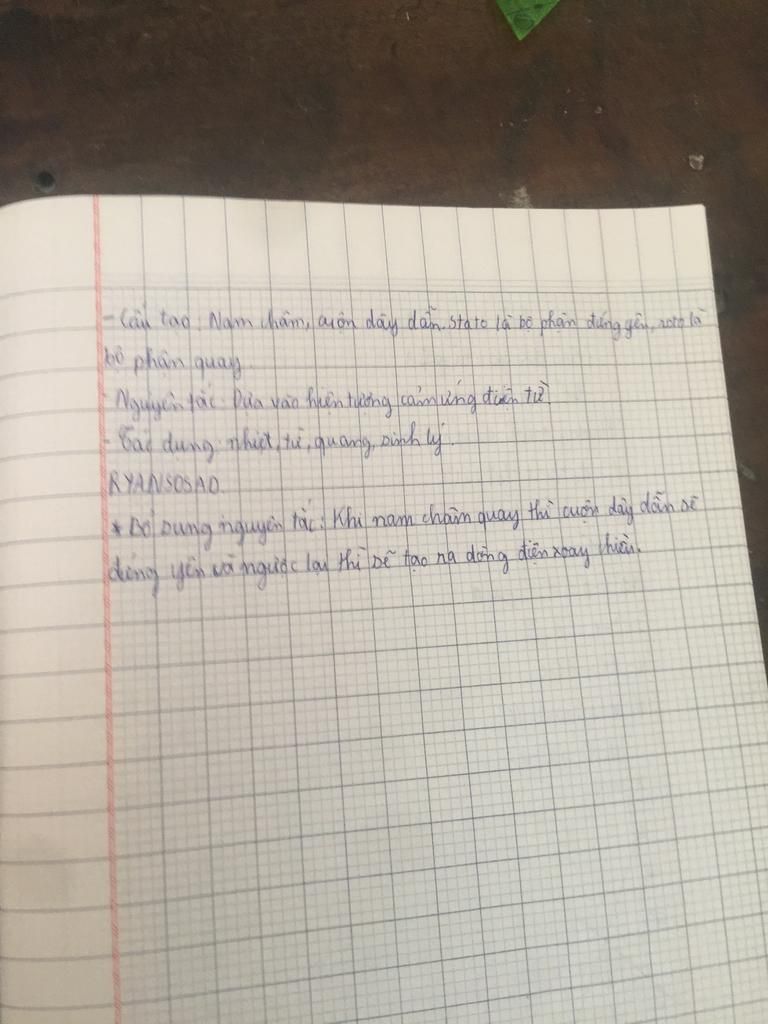 - Cấu tạo: Nam châm, cuộn dây dẫn. Stato là bộ phận đứng yên, roto là
bộ phận quay.
- Nguyên tắc: Dựa vào hiện tượng cảm ứng điện từ.
- Tác dụng: nhiệt, từ, quang, sinh lý.
RYANSOSAD.
* Bổ sung nguyên tắc: Khi nam châm quay thì cuộn dây dẫn sẽ
đứng yên và ngược lại thì sẽ tạo ra dòng điện xoay chiều.